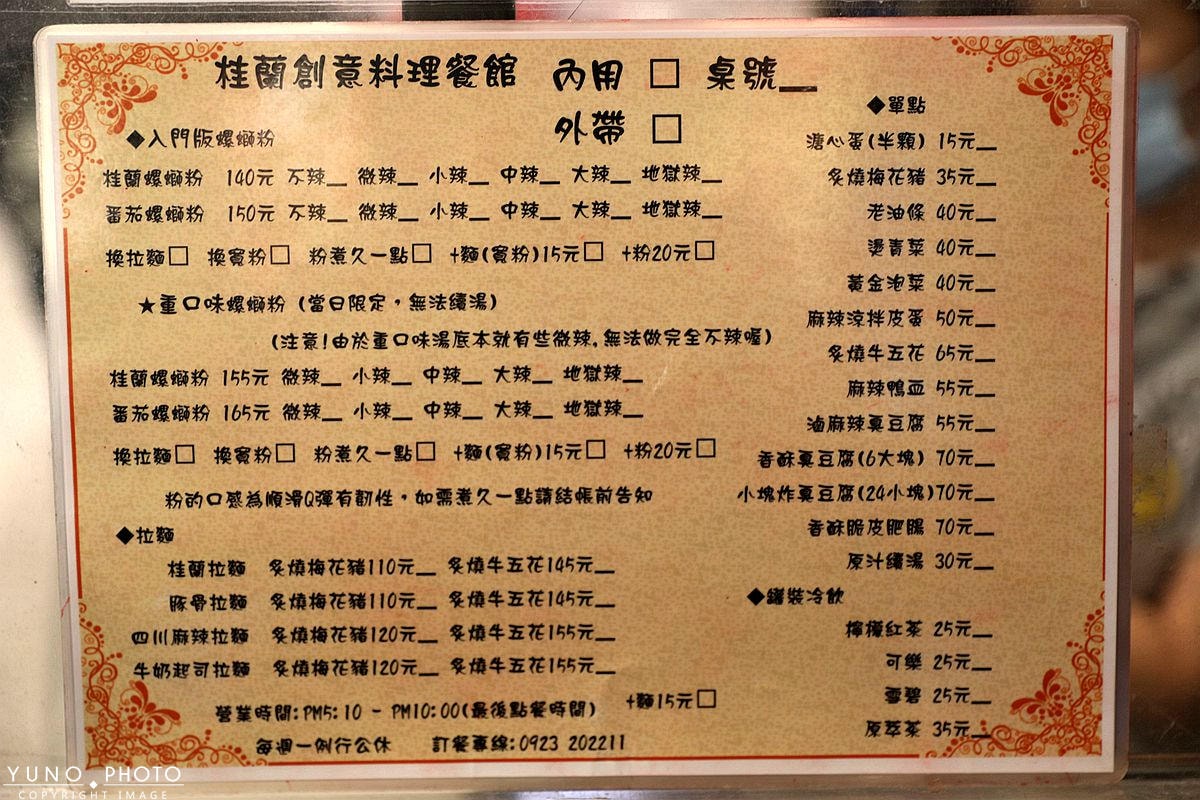 桂蘭創意料理餐館 內用 □ 桌號__
外帶 □
◆入門版螺螄粉
桂蘭螺螄粉 140元 不辣__ 微辣__ 小辣__ 中辣__ 大辣__ 地獄辣__
番茄螺螄粉 150元 不辣__ 微辣__ 小辣__ 中辣__ 大辣__ 地獄辣__
換拉麵□ 換寬粉□ 粉煮久一點□ +麵(寬粉)15元□ +粉20元□
★重口味螺螄粉 (當日限定，無法續湯)
(注意!由於重口味湯底本就有些微辣,無法做完全不辣喔)
桂蘭螺螄粉 155元 微辣__ 小辣__ 中辣__ 大辣__ 地獄辣__
番茄螺螄粉 165元 微辣__ 小辣__ 中辣__ 大辣__ 地獄辣__
換拉麵□ 換寬粉□ 粉煮久一點□ +麵(寬粉)15元□ +粉20元□
粉的口感為順滑Q彈有韌性，如需煮久一點請結帳前告知
◆拉麵
桂蘭拉麵 炙燒梅花豬110元__ 炙燒牛五花145元__
豚骨拉麵 炙燒梅花豬110元__ 炙燒牛五花145元__
四川麻辣拉麵 炙燒梅花豬120元__ 炙燒牛五花155元__
牛奶起司拉麵 炙燒梅花豬120元__ 炙燒牛五花155元__
+麵15元□
營業時間:PM5:10 - PM10:00(最後點餐時間)
每週一例行公休 訂餐專線:0923 202211
◆單點
溏心蛋(半顆) 15元__
炙燒梅花豬 35元__
老油條 40元__
燙青菜 40元__
黃金泡菜 40元__
麻辣涼拌皮蛋 50元__
炙燒牛五花 65元__
麻辣鴨血 55元__
滷麻辣臭豆腐 55元__
香酥臭豆腐(6大塊) 70元__
小塊炸臭豆腐(24小塊)70元__
香酥脆皮肥腸 70元__
原汁續湯 30元__
◆罐裝冷飲
檸檬紅茶 25元__
可樂 25元__
雪碧 25元__
原萃茶 35元__
YUNO PHOTO
COPYRIGHT IMAGE